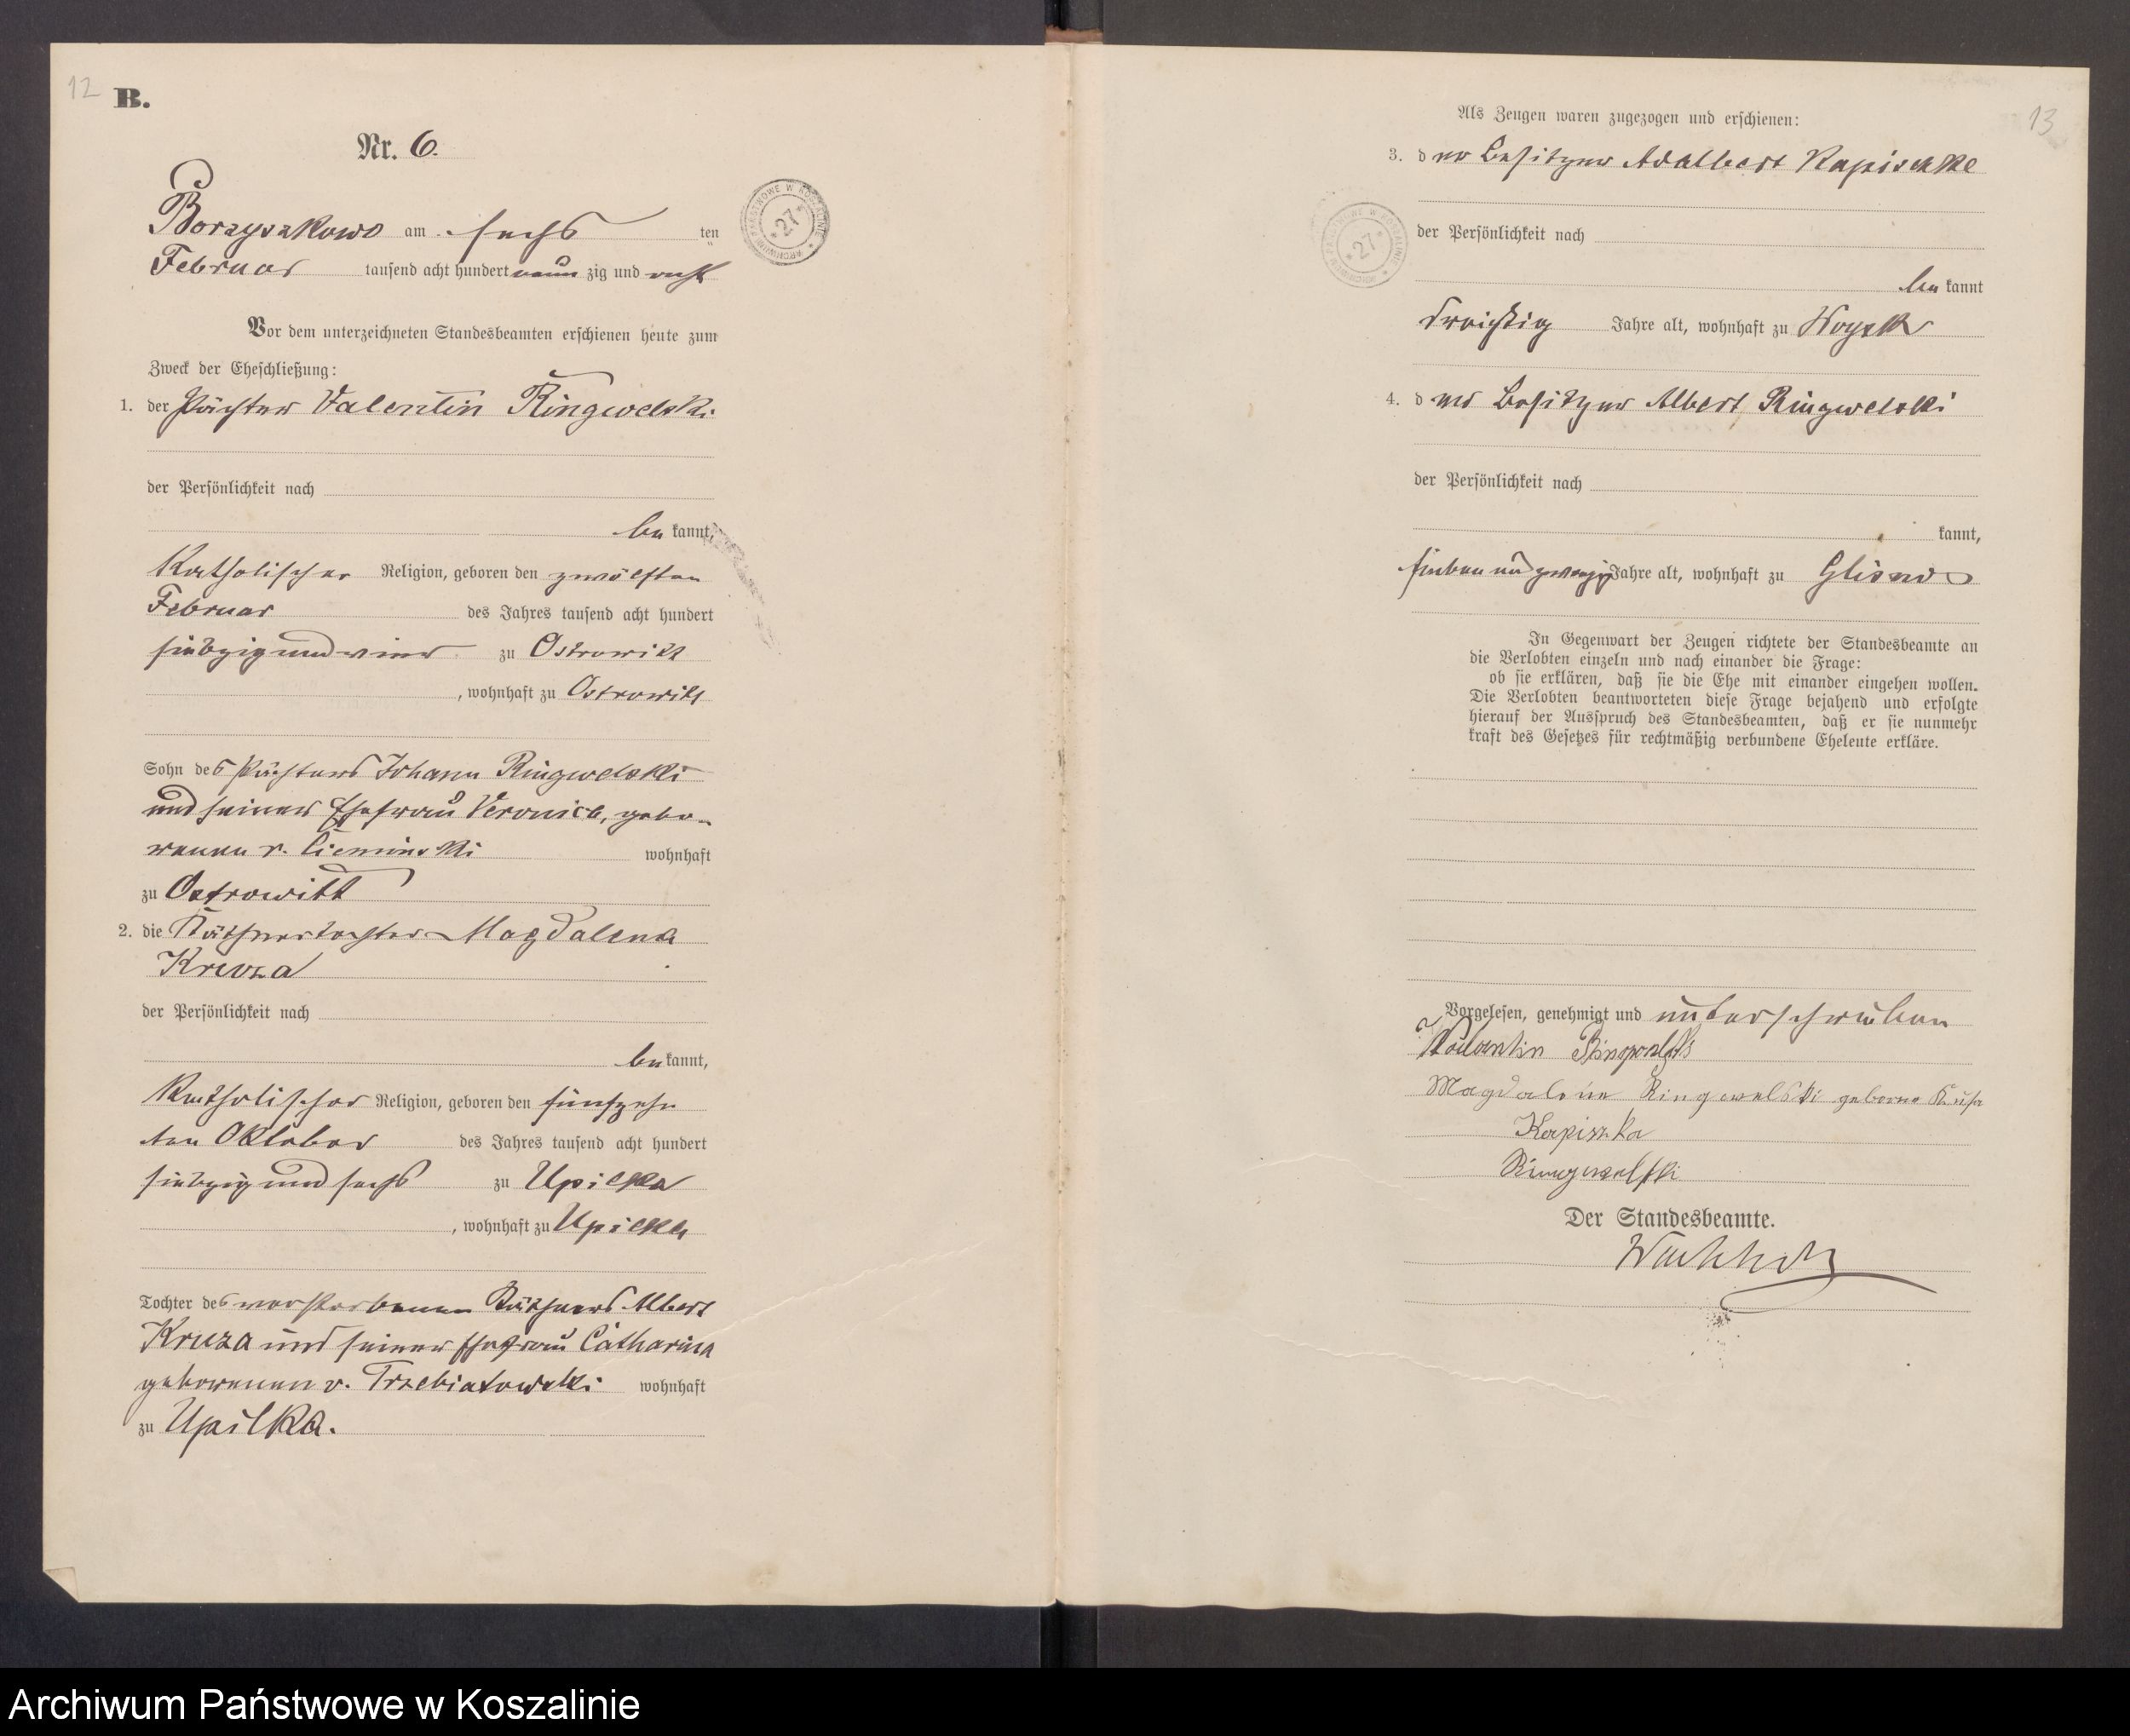 12
B.
Nr. 6.
Borzyszkowo am sechs ten
Februar tausend acht hundert neun zig und acht
Vor dem unterzeichneten Standesbeamten erschienen heute zum
Zweck der Eheschließung:
1. der Pächter Valentin Ringwelski
der Persönlichkeit nach
be kannt,
Katholischer Religion, geboren den zwölften
Februar des Jahres tausend acht hundert
siebzig und vier zu Ostrowitt
, wohnhaft zu Ostrowitt
Sohn des Pächters Johann Ringwelski
und seiner Ehefrau Veronica, gebo-
renen v. Cieminski wohnhaft
zu Ostrowitt
2. die Käthnertochter Magdalena
Kruza
der Persönlichkeit nach
be kannt,
Katholischer Religion, geboren den fünfzehn
ten Oktober des Jahres tausend acht hundert
siebzig und sechs zu Upilka
, wohnhaft zu Upilka
Tochter des verstorbenen Käthners Albert
Kruza und seiner Ehefrau Catharina
geborenen v. Trzebiatowski wohnhaft
zu Upilka.
ARCHIWUM PAŃSTWOWE W KOSZALINIE * 27 *
13
Als Zeugen waren zugezogen und erschienen:
3. der Besitzer Adalbert Kapischke
der Persönlichkeit nach
be kannt
dreißig Jahre alt, wohnhaft zu Woysk
4. der Besitzer Albert Ringwelski
der Persönlichkeit nach
kannt,
sieben und zwanzig Jahre alt, wohnhaft zu Glisno
In Gegenwart der Zeugen richtete der Standesbeamte an
die Verlobten einzeln und nach einander die Frage:
ob sie erklären, daß sie die Ehe mit einander eingehen wollen.
Die Verlobten beantworteten diese Frage bejahend und erfolgte
hierauf der Ausspruch des Standesbeamten, daß er sie nunmehr
kraft des Gesetzes für rechtmäßig verbundene Eheleute erkläre.
Vorgelesen, genehmigt und unterschrieben
Valentin Ringwelski
Magdalena Ringewelski geborne
Kapiszka
Ringwelski
Der Standesbeamte.
Wachholz
ARCHIWUM PAŃSTWOWE W KOSZALINIE * 27 *
Archiwum Państwowe w Koszalinie